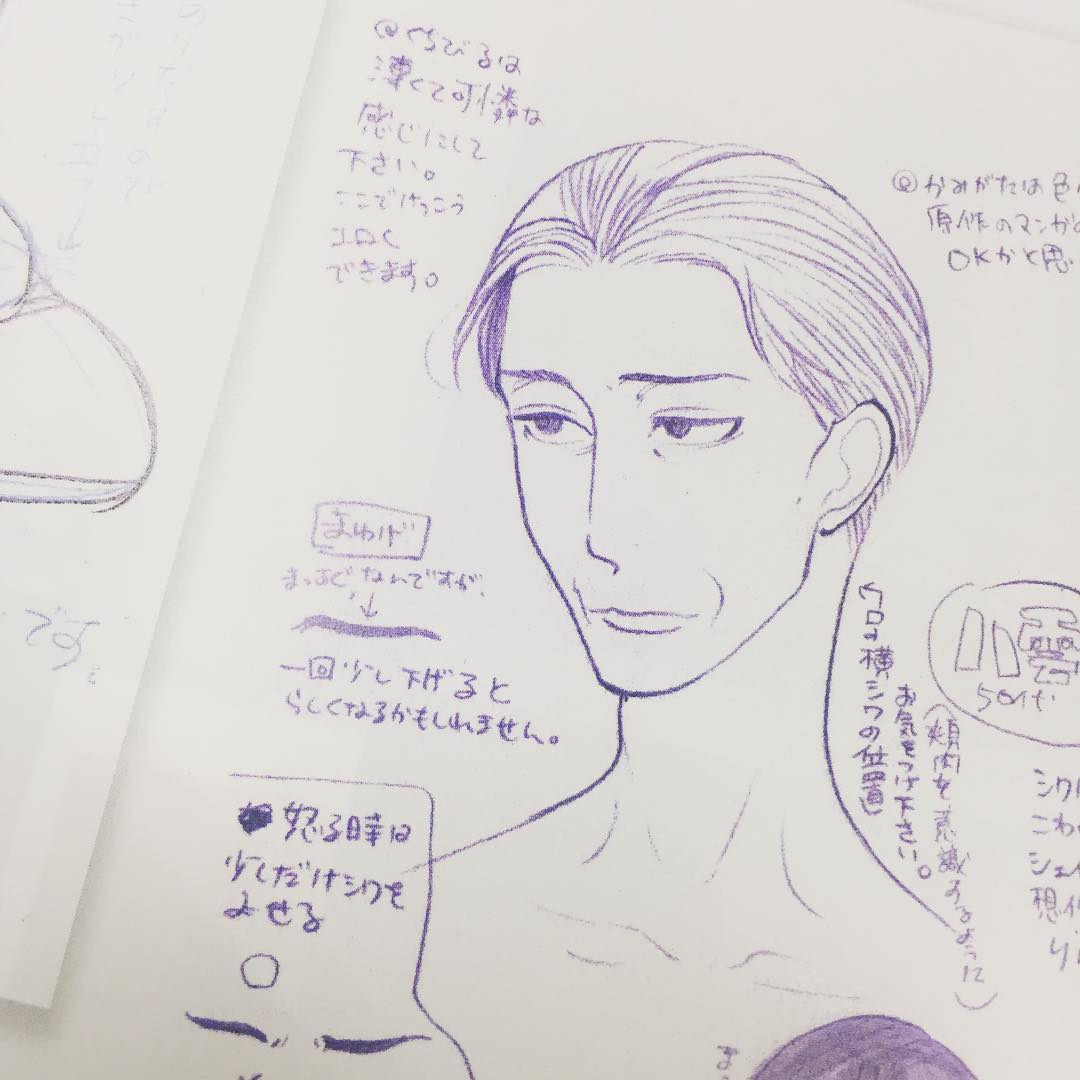 @くちびるは
薄くて可憐な
感じにして
下さい。
ここでけっこう
エロく
できます。
@かみがたは色
原作のマンガの
OKかと思
まゆげ
まっすぐなんですが、
↓
一回少し下げると
らしくなるかもしれません。
怒る時は
少しだけシワを
よせる
○
←口の横シワの位置
お気をつけ下さい。
(頬肉を意識するように)
小霊
50代
シワ
こわ
シェイ
想
です。